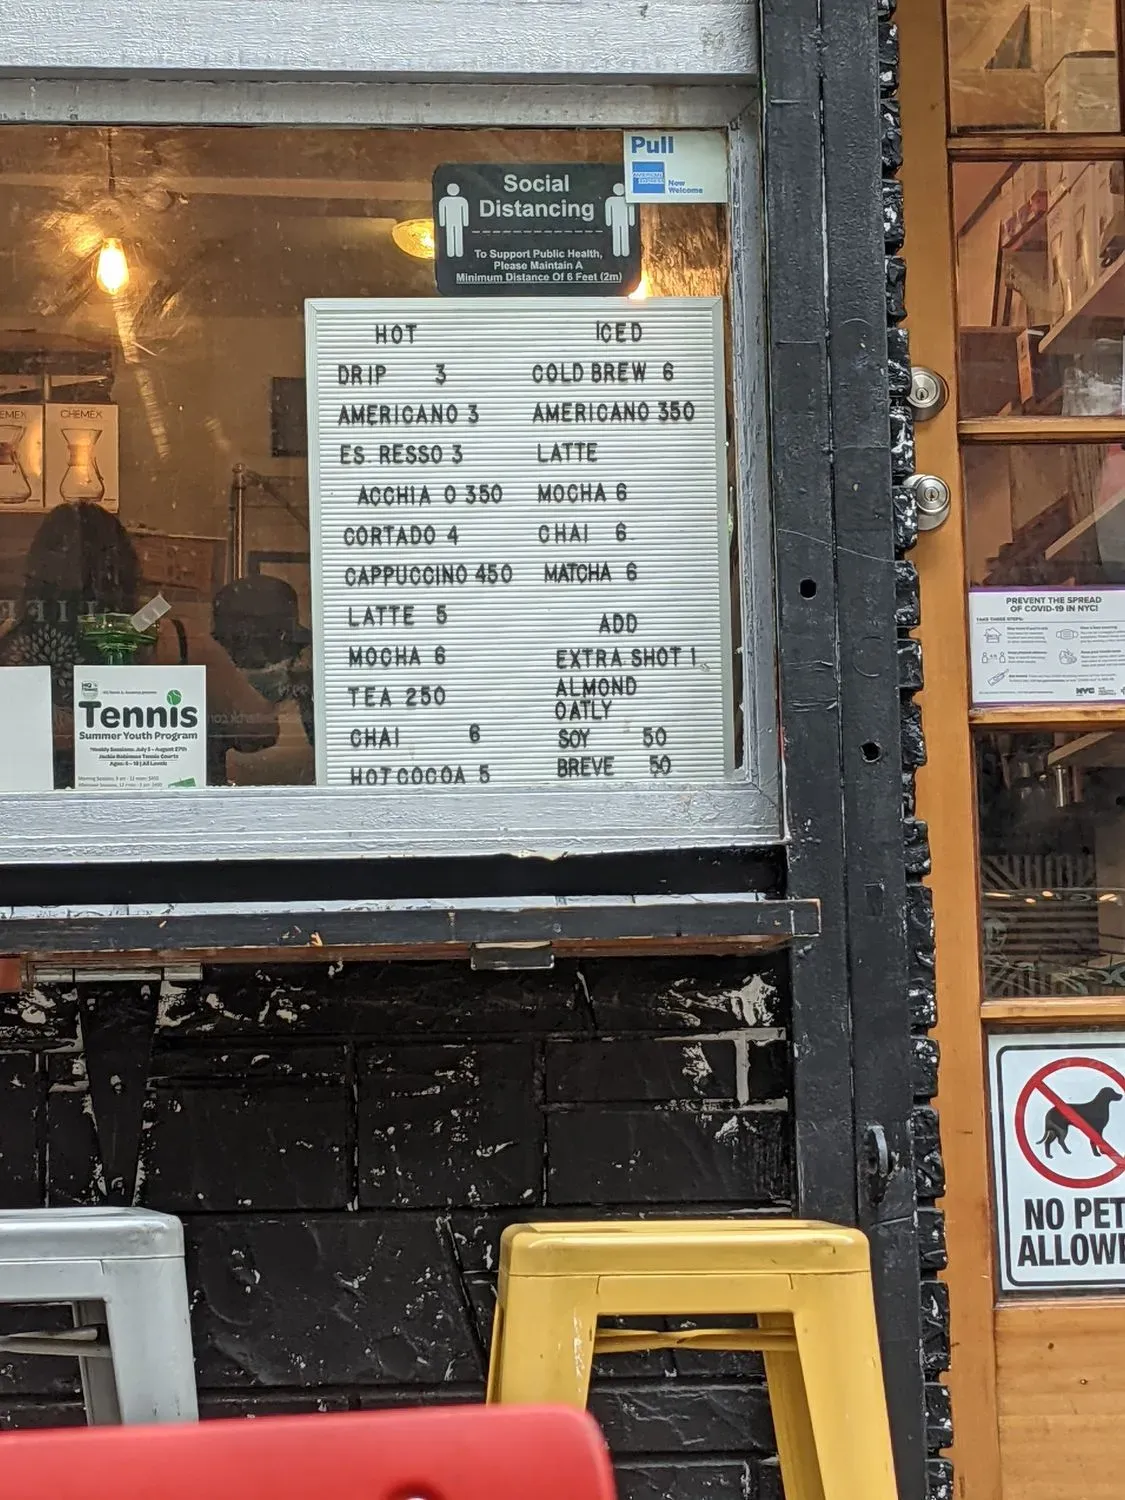 Pull
AMERICAN EXPRESS
Now Welcome
Social
Distancing
To Support Public Health,
Please Maintain A
Minimum Distance Of 6 Feet (2m)
HOT
DRIP 3
AMERICANO 3
ES. RESSO 3
ACCHIA O 350
CORTADO 4
CAPPUCCINO 450
LATTE 5
MOCHA 6
TEA 250
CHAI 6
HOT COCOA 5
ICED
COLD BREW 6
AMERICANO 350
LATTE
MOCHA 6
CHAI 6
MATCHA 6
ADD
EXTRA SHOT 1
ALMOND
OATLY
SOY 50
BREVE 50
EMEX
CHEMEX
Tennis
Summer Youth Program
Weekly Sessions: July 5 - August 27th
Jackie Robinson Tennis Courts
PREVENT THE SPREAD
OF COVID-19 IN NYC!
TAKE THESE STEPS:
NYC
NO PET
ALLOWE